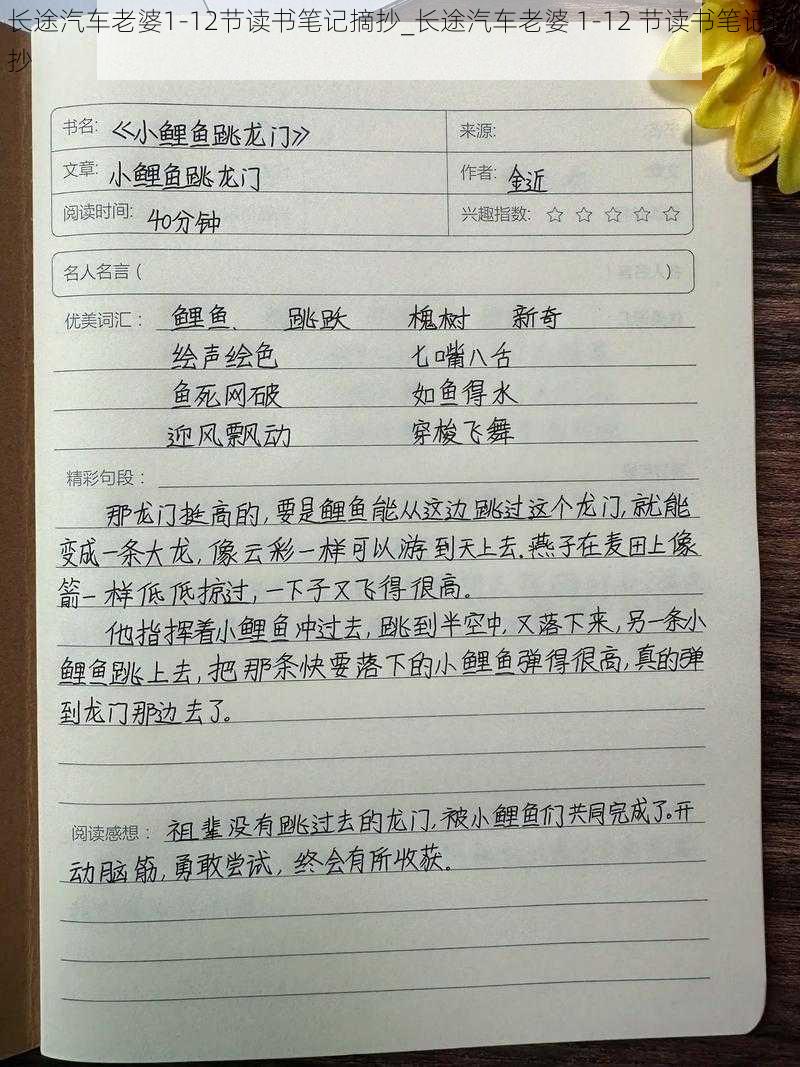 长途汽车老婆1-12节读书笔记摘抄_长途汽车老婆 1-12 节读书笔记摘
抄
书名: 《小鲤鱼跳龙门》 来源:
文章: 小鲤鱼跳龙门 作者: 金近
阅读时间: 40分钟 兴趣指数: ☆ ☆ ☆ ☆ ☆
名人名言 ( )
优美词汇: 鲤鱼. 跳跃 槐树 新奇
绘声绘色 七嘴八舌
鱼死网破 如鱼得水
迎风飘动 穿梭飞舞
精彩句段:
那龙门挺高的,要是鲤鱼能从这边跳过这个龙门,就能
变成一条大龙,像云彩一样可以游到天上去.燕子在麦田上像
箭一样低低掠过,一下子又飞得很高。
他指挥着小鲤鱼冲过去,跳到半空中,又落下来,另一条小
鲤鱼跳上去,把那条快要落下的小鲤鱼弹得很高,真的弹
到龙门那边去了。
阅读感想: 祖辈没有跳过去的龙门,被小鲤鱼们共同完成了。开
动脑筋,勇敢尝试,终会有所收获。